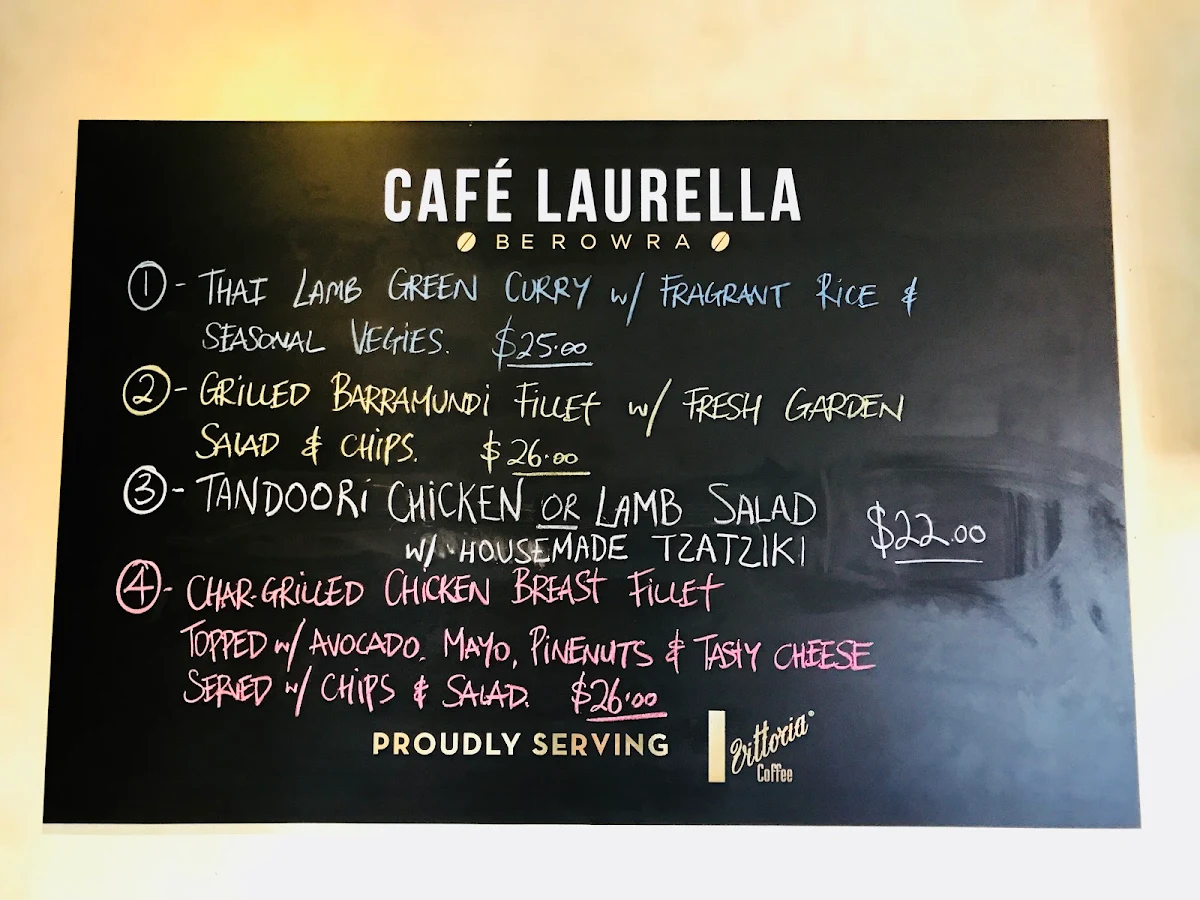 CAFÉ LAURELLA
BEROWRA
1 - THAI LAMB GREEN CURRY w/ FRAGRANT RICE &
SEASONAL VEGIES. $25.00
2 - GRILLED BARRAMUNDI FILLET w/ FRESH GARDEN
SALAD & CHIPS. $26.00
3 - TANDOORI CHICKEN OR LAMB SALAD
w/ HOUSEMADE TZATZIKI $22.00
4 - CHAR-GRILLED CHICKEN BREAST FILLET
TOPPED w/ AVOCADO, MAYO, PINENUTS & TASTY CHEESE
SERVED w/ CHIPS & SALAD. $26.00
PROUDLY SERVING
Vittoria®
Coffee